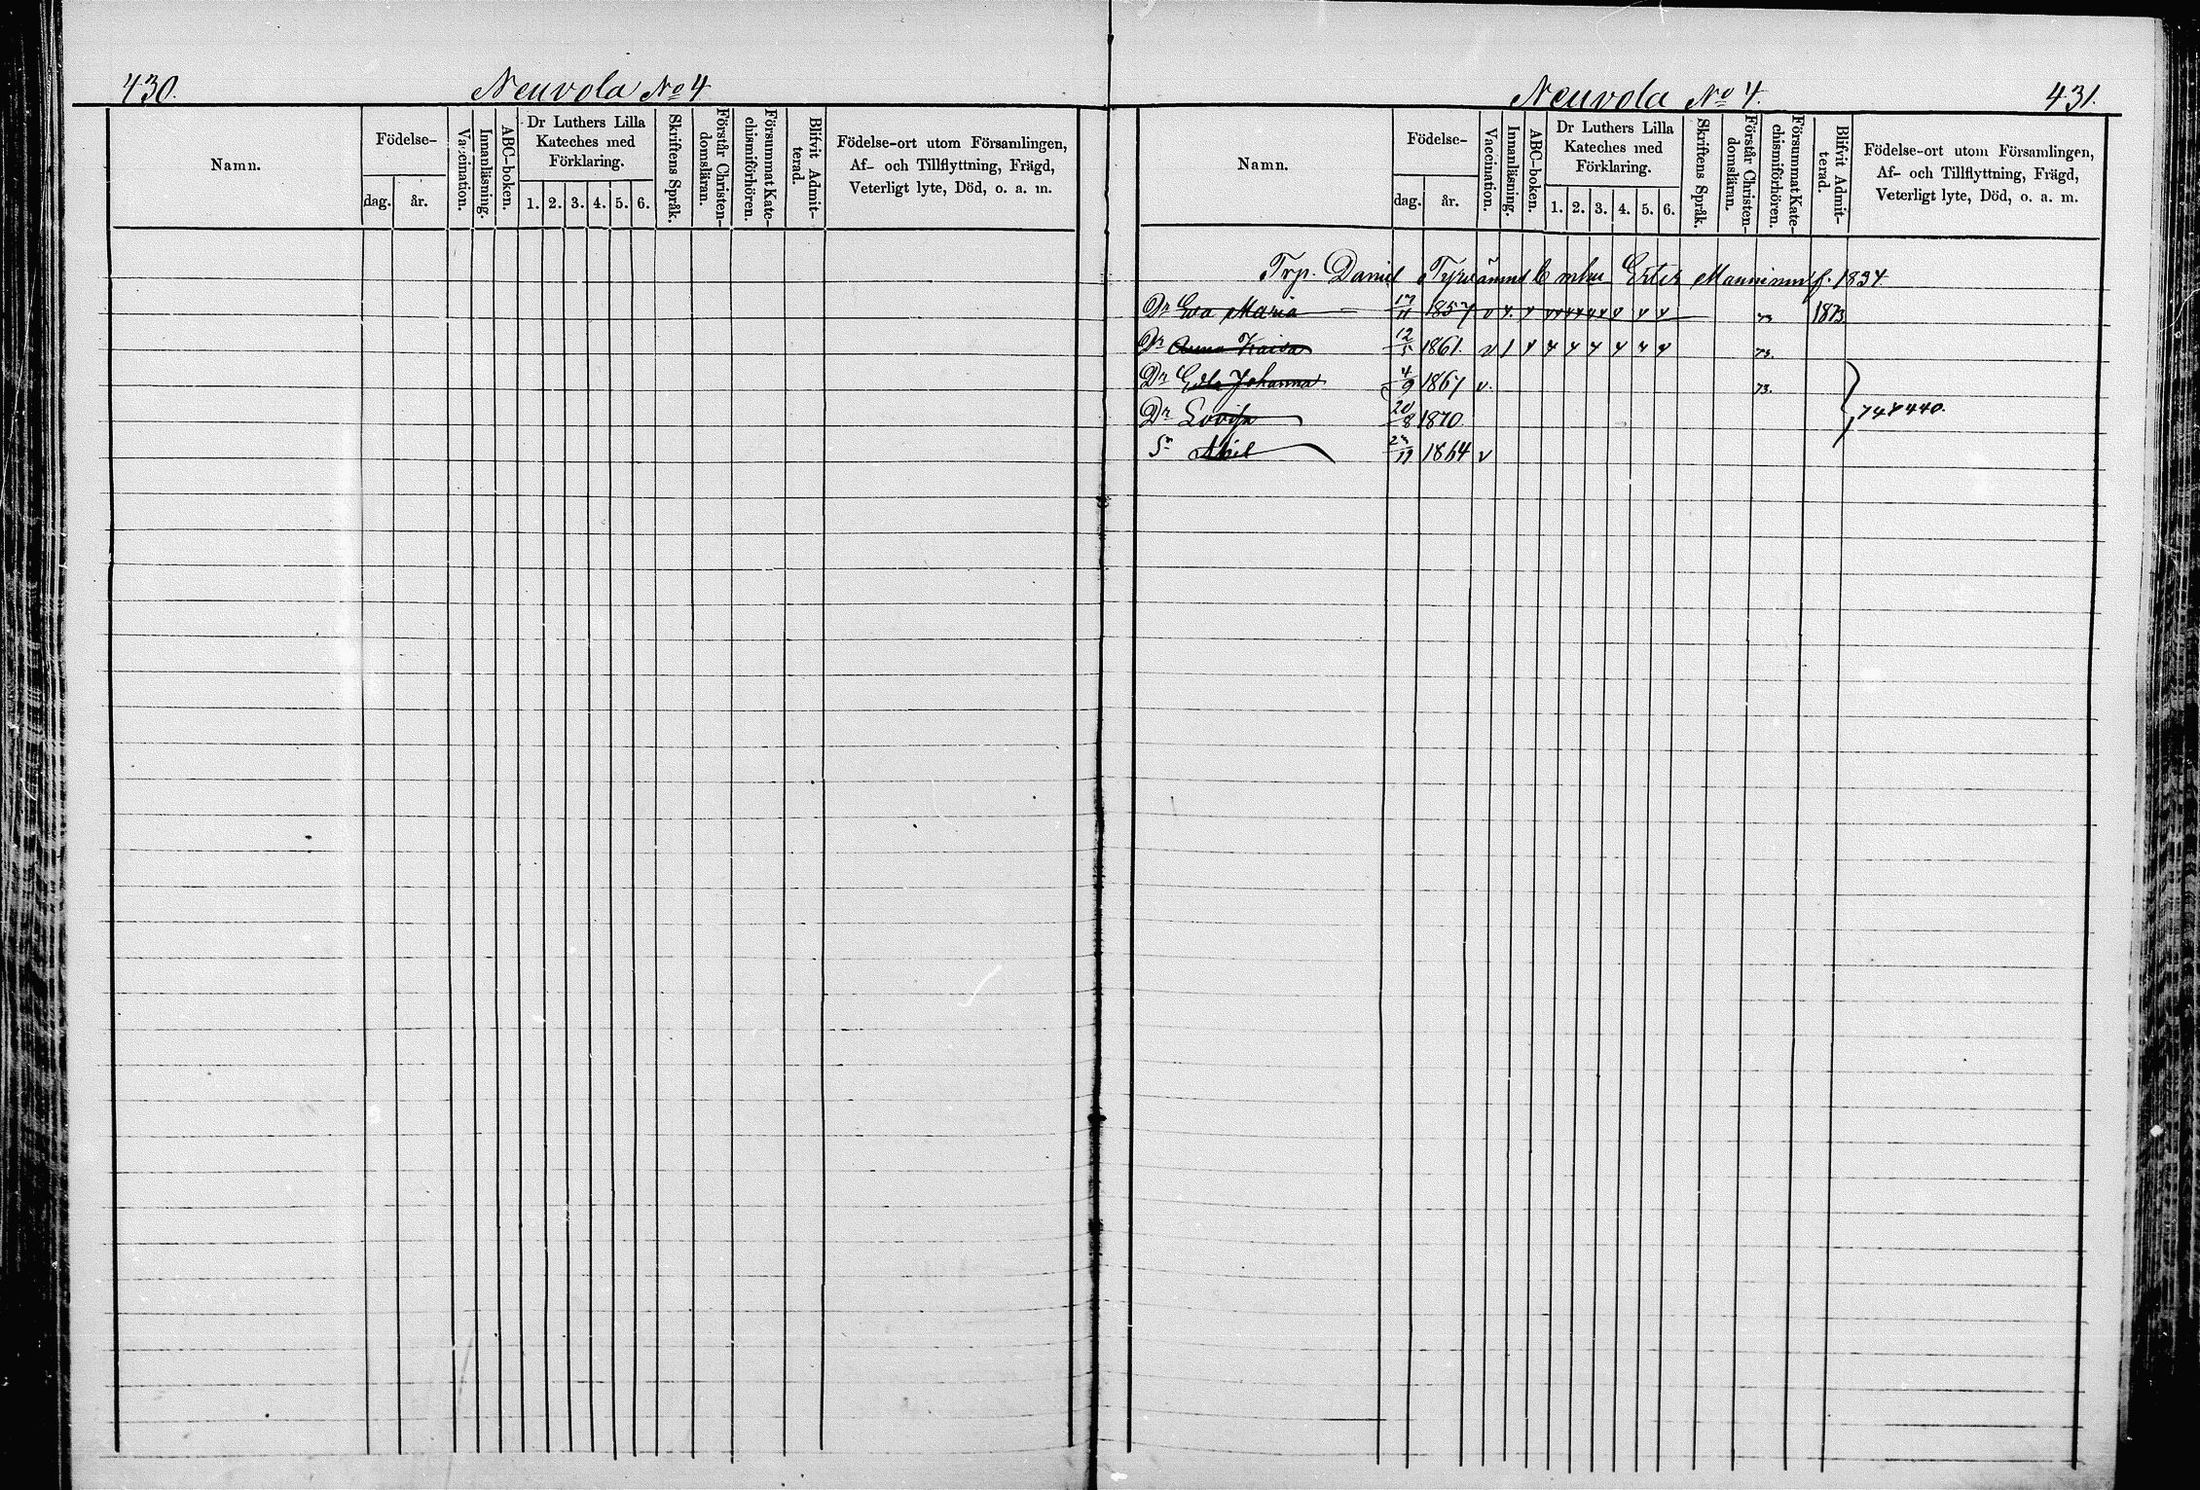 430. Neuvola No 4
Namn.
Födelse-
dag. år.
Vaccination.
Innanläsning.
ABC-boken.
Dr Luthers Lilla Kateches med Förklaring.
1. 2. 3. 4. 5. 6.
Skriftens Språk.
Förstår Christen-domsläran.
Försummat Kate-chismiförhören.
Blifvit Admit-terad.
Födelse-ort utom Församlingen,
Af- och Tillflyttning, Frägd,
Veterligt lyte, Död, o. a. m.
Neuvola No 4. 431.
Namn.
Födelse-
dag. år.
Vaccination.
Innanläsning.
ABC-boken.
Dr Luthers Lilla Kateches med Förklaring.
1. 2. 3. 4. 5. 6.
Skriftens Språk.
Förstår Christen-domsläran.
Försummat Kate-chismiförhören.
Blifvit Admit-terad.
Födelse-ort utom Församlingen,
Af- och Tillflyttning, Frägd,
Veterligt lyte, Död, o. a. m.
Trp. Daniel Ester f. 1834
Dr Eva Maria 17/11 1857 v 73 1873
Dr Anna Kaisa 12/5 1861. v 73.
Dr Edla Johanna 4/9 1867 v. 73.
Dr Lovisa 20/8 1870
Sn Abel 1864 v